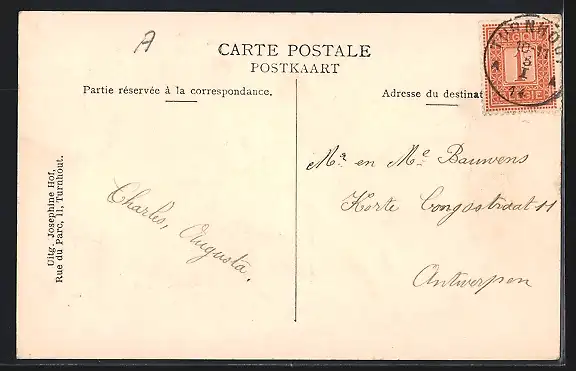 A
CARTE POSTALE
POSTKAART
Partie réservée à la correspondance.
Adresse du destinat
TURNHOUT
1
Mr en Me Bauwens
Korte Congostraat 11
Antwerpen
Charles, Augusta.
Uitg. Josephine Hof,
Rue du Parc, 11, Turnhout.